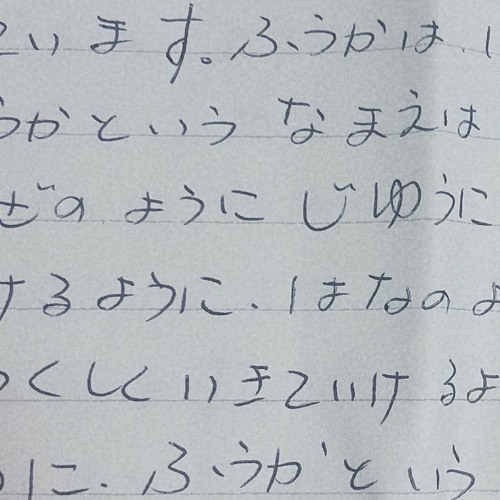 います。ふうかは、
うかという なまえは
ぜのように じゆうに
けるように、はなのよ
つくしくいきていけるよ
うに、ふうかという